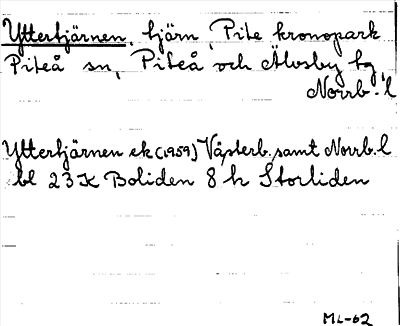 Yttertjärnen, tjärn, Pite kronopark
Piteå sn, Piteå och Älvsby tg
Norrb. l
Yttertjärnen ek (1959) Västerb. samt Norrb. l
bl 23 K Boliden 8 h Storliden
ML-62